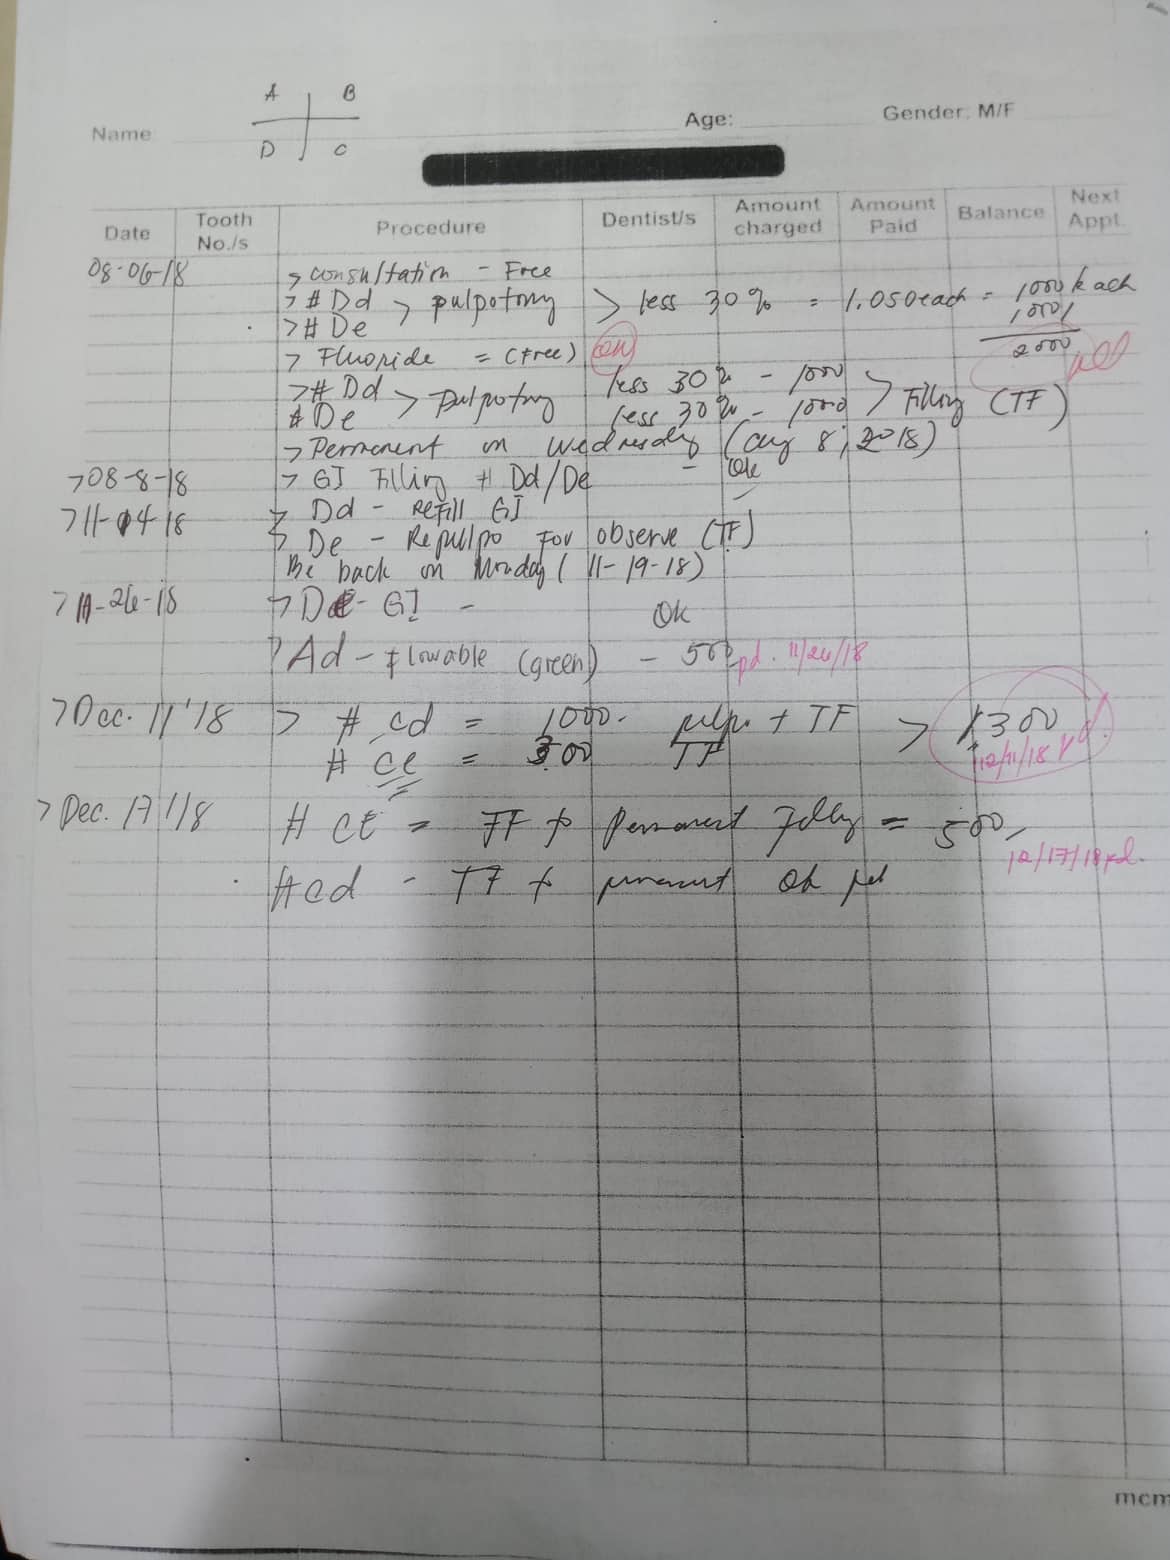 A B
D C
Name Age: Gender: M/F
Date Tooth No./s Procedure Dentist/s Amount charged Amount Paid Balance Next Appt.
08-06-18 > consultation - Free
> # Dd > pulpotomy > less 30% = 1.050 each = 1000 each
> # De 1000
> Fluoride = (Free) 2000
> # Dd > Pulpotomy less 30% - 1000 > Filling (TF)
# De less 30% - 1000
> Permanent on Wednesday (Aug 8, 2018)
> 08-8-18 > GI Filling # Dd/De - Ok
> 11-04-18 > Dd - Refill GI
> De - Repulpo For observe (TF)
Be back on Monday (11-19-18)
> 11-26-18 > De - GI - Ok
> Ad - flowable (green) - 500 pd. 11/26/18
> Dec. 11 '18 > # cd = 1000. pulpo + TF > 1300
# ce = 300 TF 12/11/18 pd.
> Dec. 17 '18 # ce = TF + Permanent Filling = 500,
12/17/18 pd.
# cd - TF + permanent Ok pd
mcm